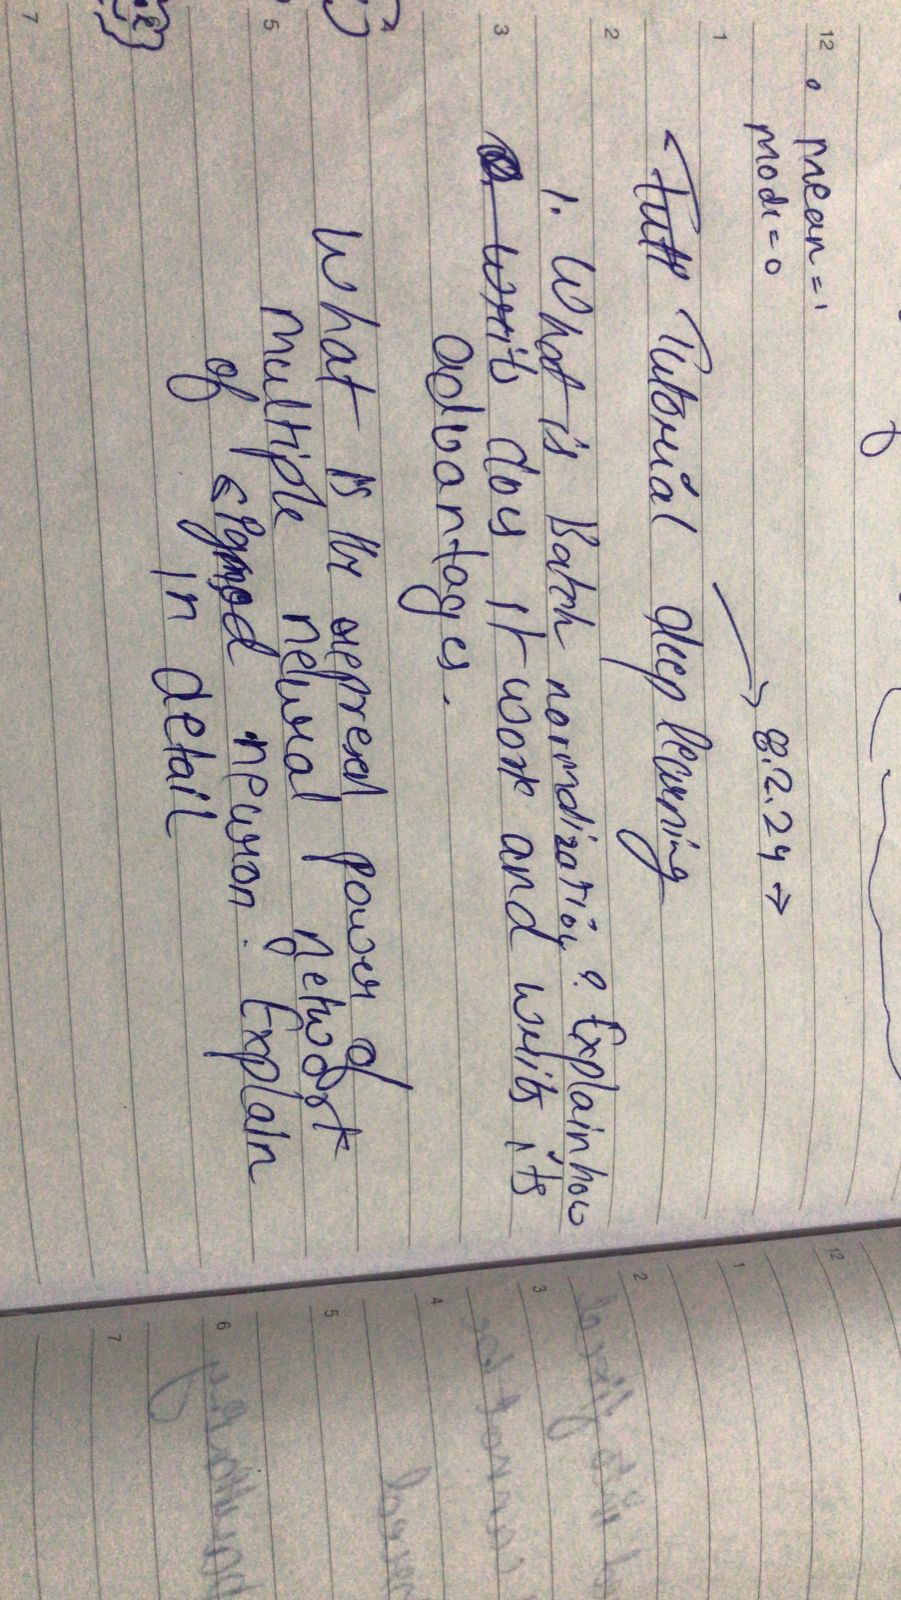 12
mean = 1
mode = 0
1
8.2.24 →
Tutorial deep learning
2
1. What is Batch normalization? Explain how
3
does it work and write its
advantages.
What is the represen power of
5
multiple neural network
of sigmod neuron. Explain
in detail
7
12
1
2
3
4
5
6
7